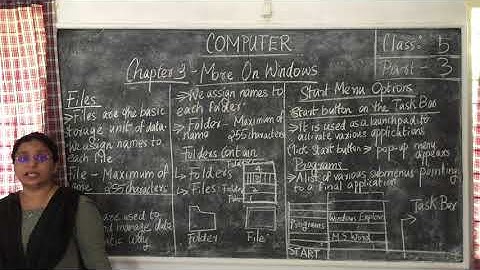 COMPUTER
Class: 5
Part - 3
Chapter 3 - More On Windows
Files
→ Files are the basic
storage unit of data.
We assign names to
each file
File - Maximum of
name 255 characters
are used to
manage data
way
→ We assign names to
each
→ Folder - Maximum of
name 255 characters
Folders contain
→ folders
→ Files
Folder
File
Start Menu Options
Start button on the Task Bar
→ It is used as a launchpad to
activate various applications
Click start button → pop-up menu
appears
Programs
→ A list of various submenus pointing
to a final application
Programs
Windows Explorer
M.S. Word
START
Task Bar